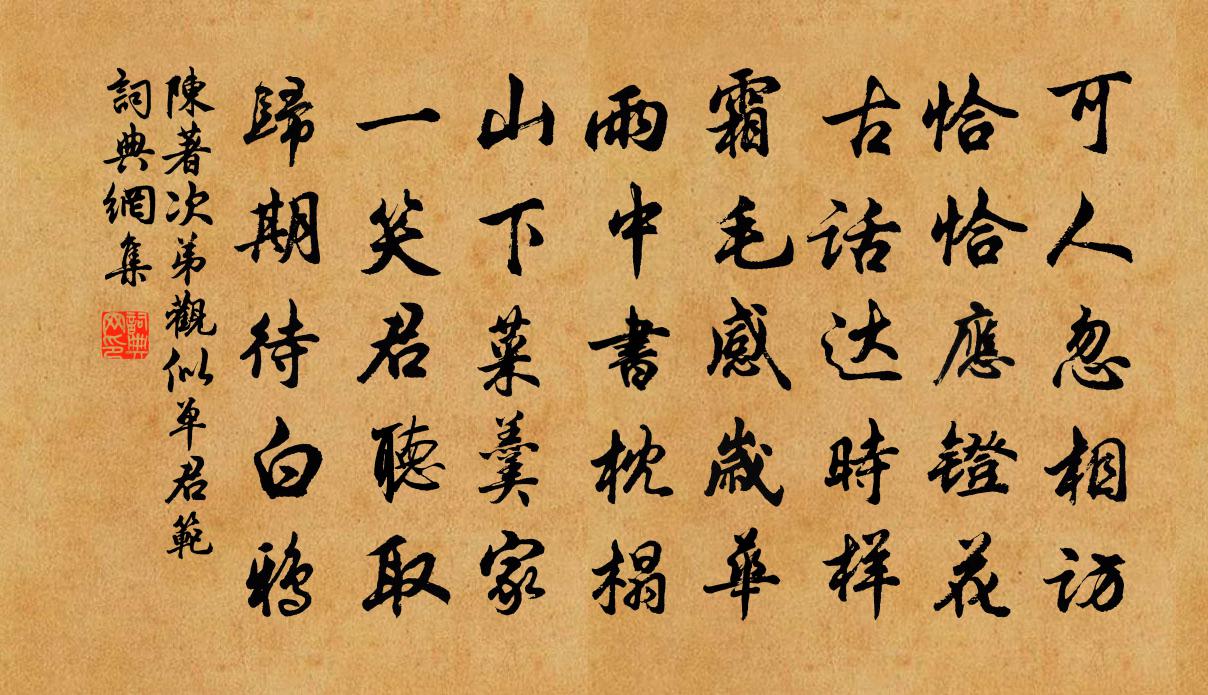 可人忽相訪
恰恰應鐙花
古話达時样
霜毛感歲華
雨中書枕榻
山下菜羹家
一笑君聽取
歸期待白鴉
陳著次弟觀似单君範
詞典網集
詞典网印